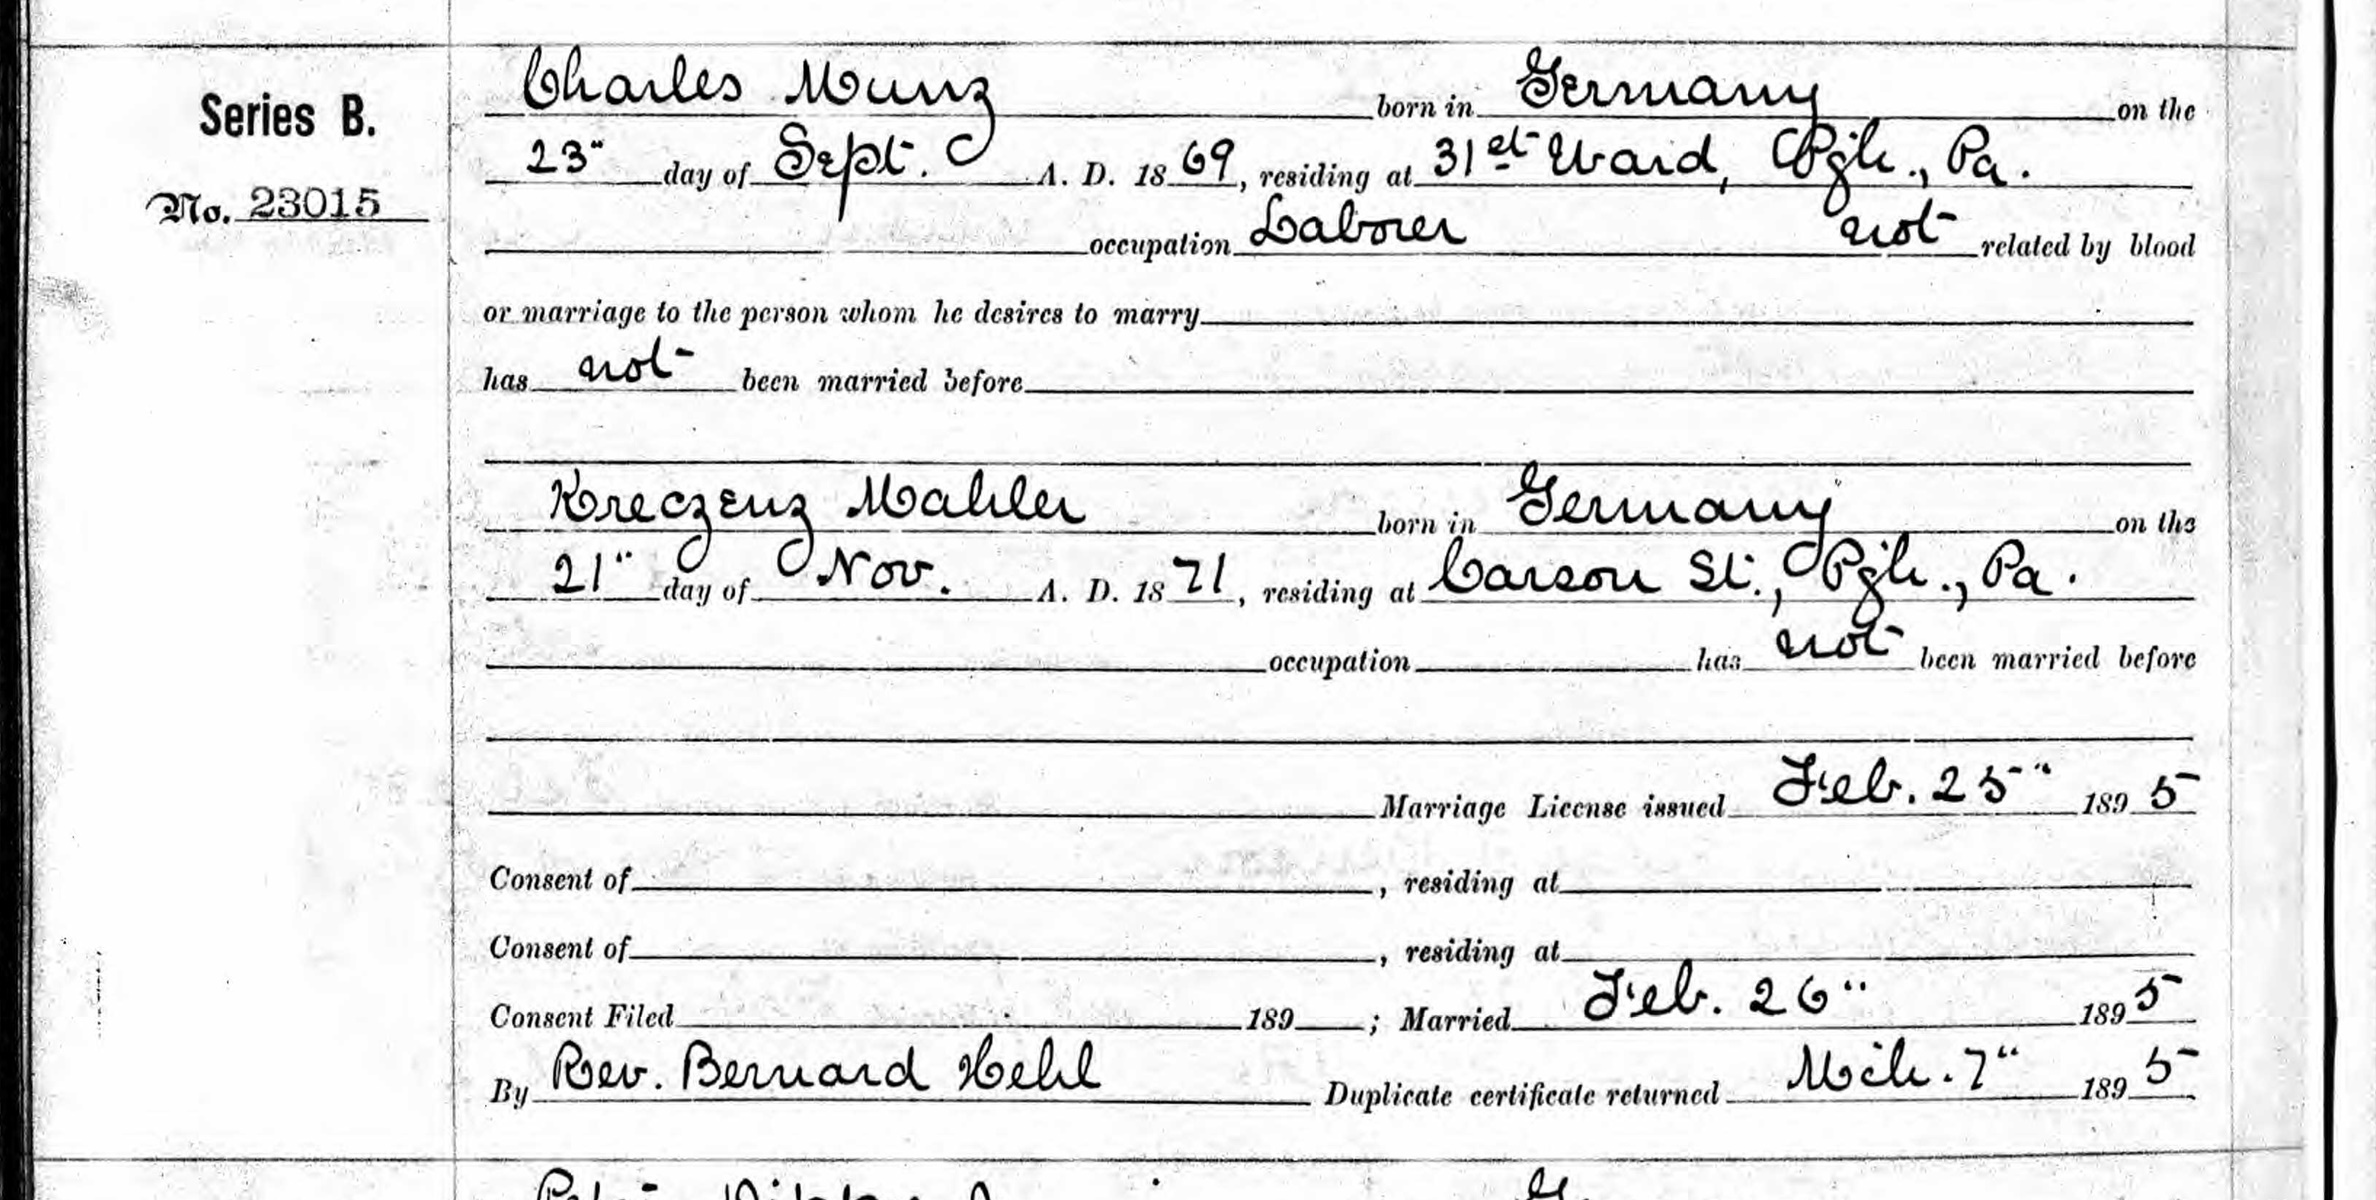 Series B.
No. 23015
Charles Munz born in Germany on the
23" day of Sept. A. D. 18 69, residing at 31st Ward, Pgh., Pa.
occupation Laborer not related by blood
or marriage to the person whom he desires to marry
has not been married before
Kreczenz Mahler born in Germany on the
21" day of Nov. A. D. 18 71, residing at Carson St., Pgh., Pa.
occupation has not been married before
Marriage License issued Feb. 25" 189 5
Consent of , residing at
Consent of , residing at
Consent Filed 189 ; Married Feb. 26" 189 5
By Rev. Bernard Hehl Duplicate certificate returned Mch. 7" 189 5